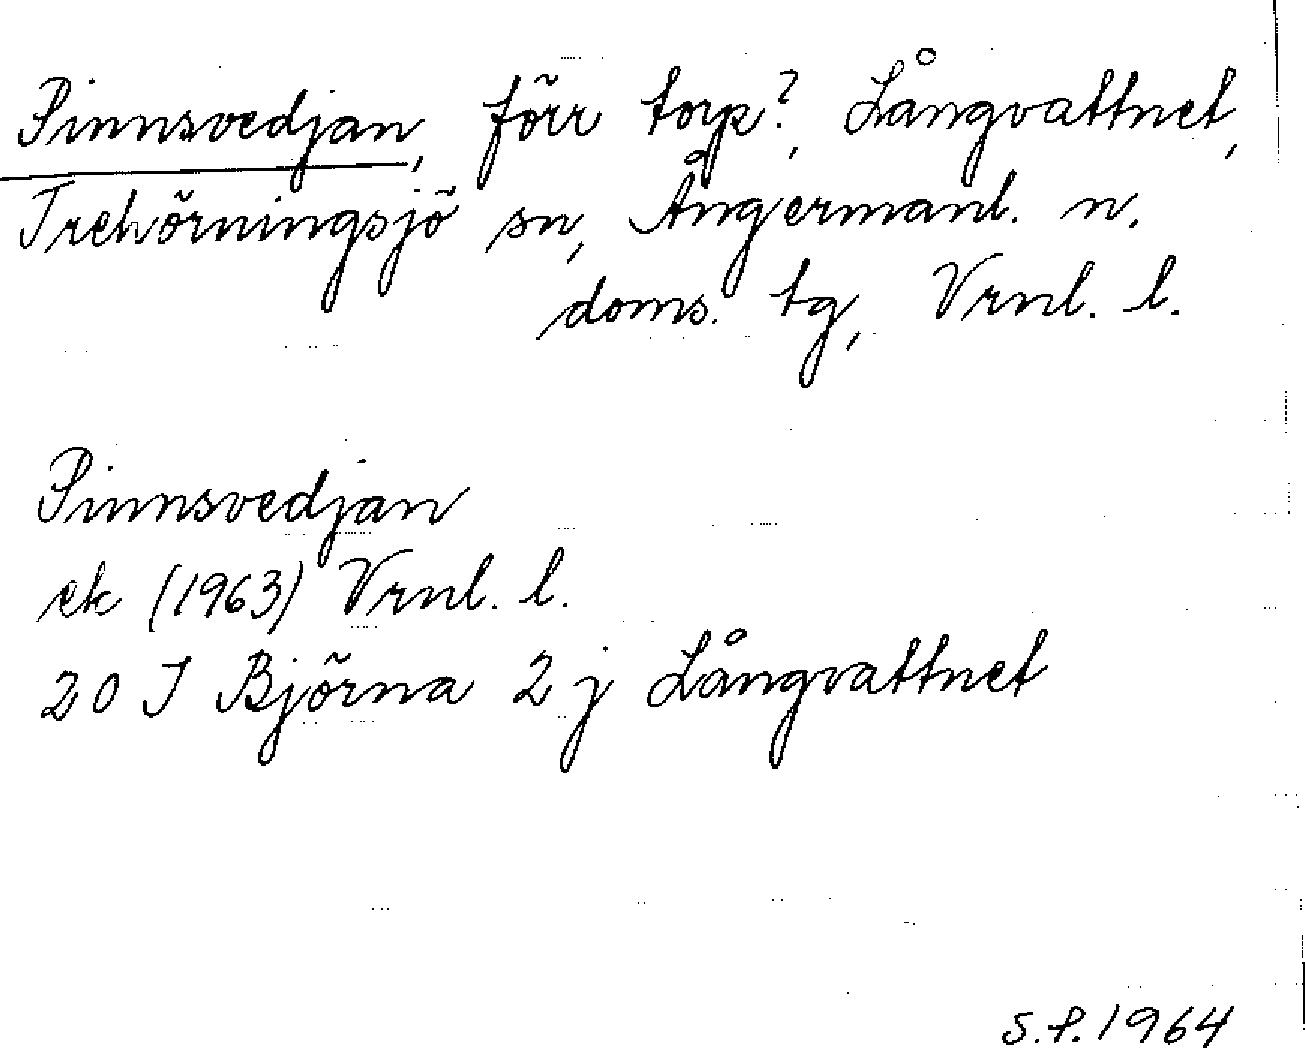 Pinnsvedjan, förr torp?, Långvattnet,
Trehörningsjö sn, Ångermanl. n.
doms. tg, Vrnl. l.
Pinnsvedjan
ek (1963) Vrnl. l.
20 I Björna 2 j Långvattnet
S.P. 1964